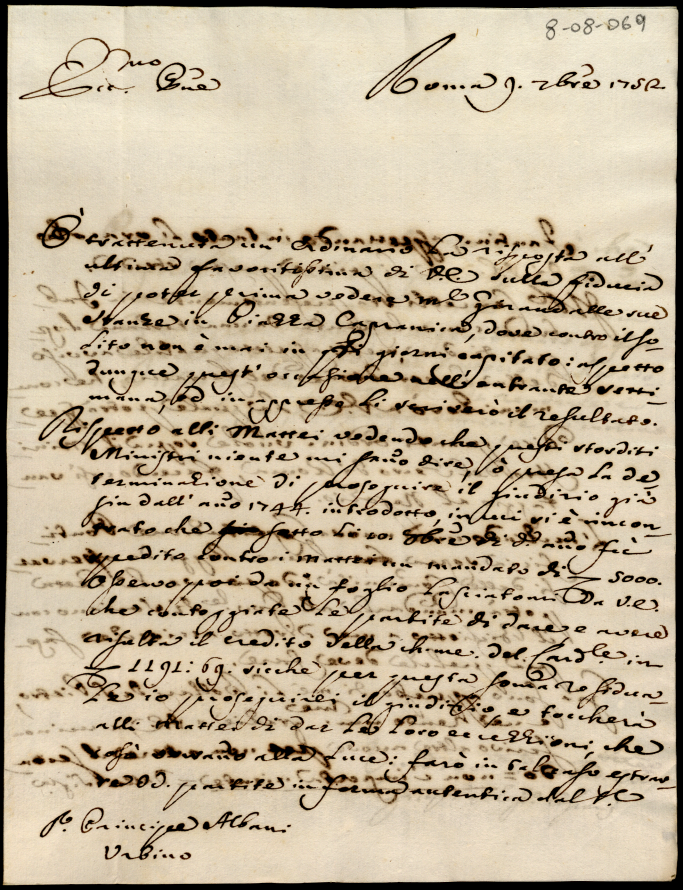 8-08-069
Ecc. Pne
Roma 9. 7bre 1752
È trattenuta un ordinario la risposta all'
ultima favoritissima di V.E. sulla fiducia
di poter prima vedere alle sue
stanze in Piazza Capranica, dove contro il so-
lito non è mai in giorni capitato: aspetto
dunque quest'occasione nell'entrante setti-
mana, ed in appresso li scriverò il resultato.
Rispetto alli Mattei vedendo che questi storditi
Ministri niente mi sanno dire, ò presa la de
terminazione di proseguire il giudizio già
fin dall'año 1744. introdotto, in cui vi è riscon-
trato che sotto li 20. di dº año fù
spedito contro i Mattei un mandato di 5000.
Osservo poi da un foglio lasciatomi da V.E.
che conteggiate le partite di dare e avere
risulta il credito della ch: me: del Cardle in
1191: 69: sicche per questa somma residua-
le io proseguirei il giudizio e toccherà
alli Mattei di dar le loro eccezzioni, che
alla luce: farò in tal caso estrar-
re dd. partite in forma autentica dal
Principe Albani
Urbino